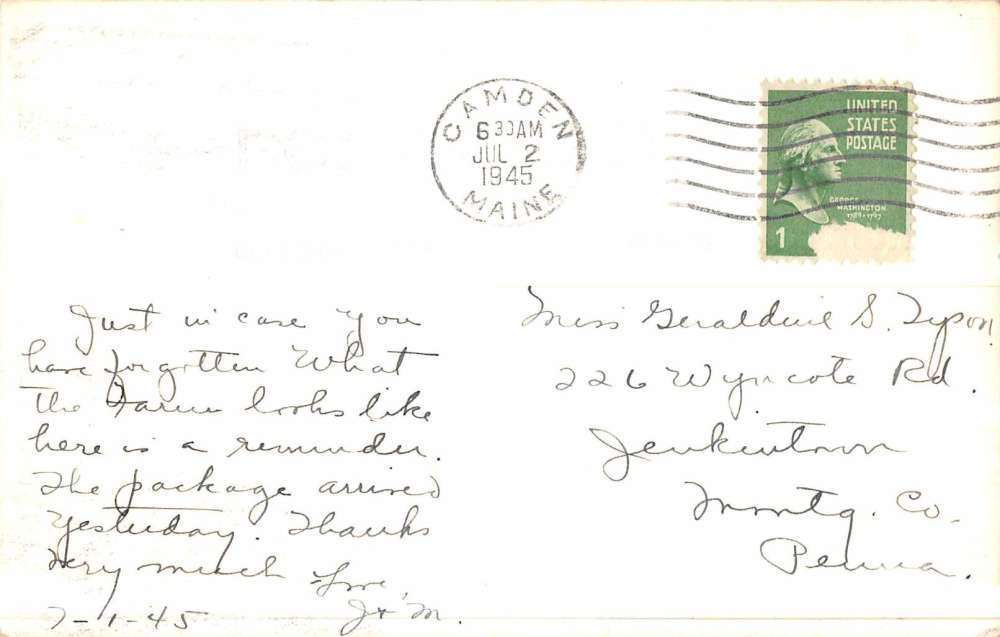 CAMDEN
6 30 AM
JUL 2
1945
MAINE
UNITED
STATES
POSTAGE
GEORGE
WASHINGTON
1789-1797
1
Just in case you
have forgotten What
the Farm looks like
here is a reminder.
The package arrived
Yesterday. Thanks
Very much
Love,
J & M.
7-1-45
Miss Geraldine S. Tyson
226 Wyncote Rd.
Jenkintown
Montg. Co.
Penna.